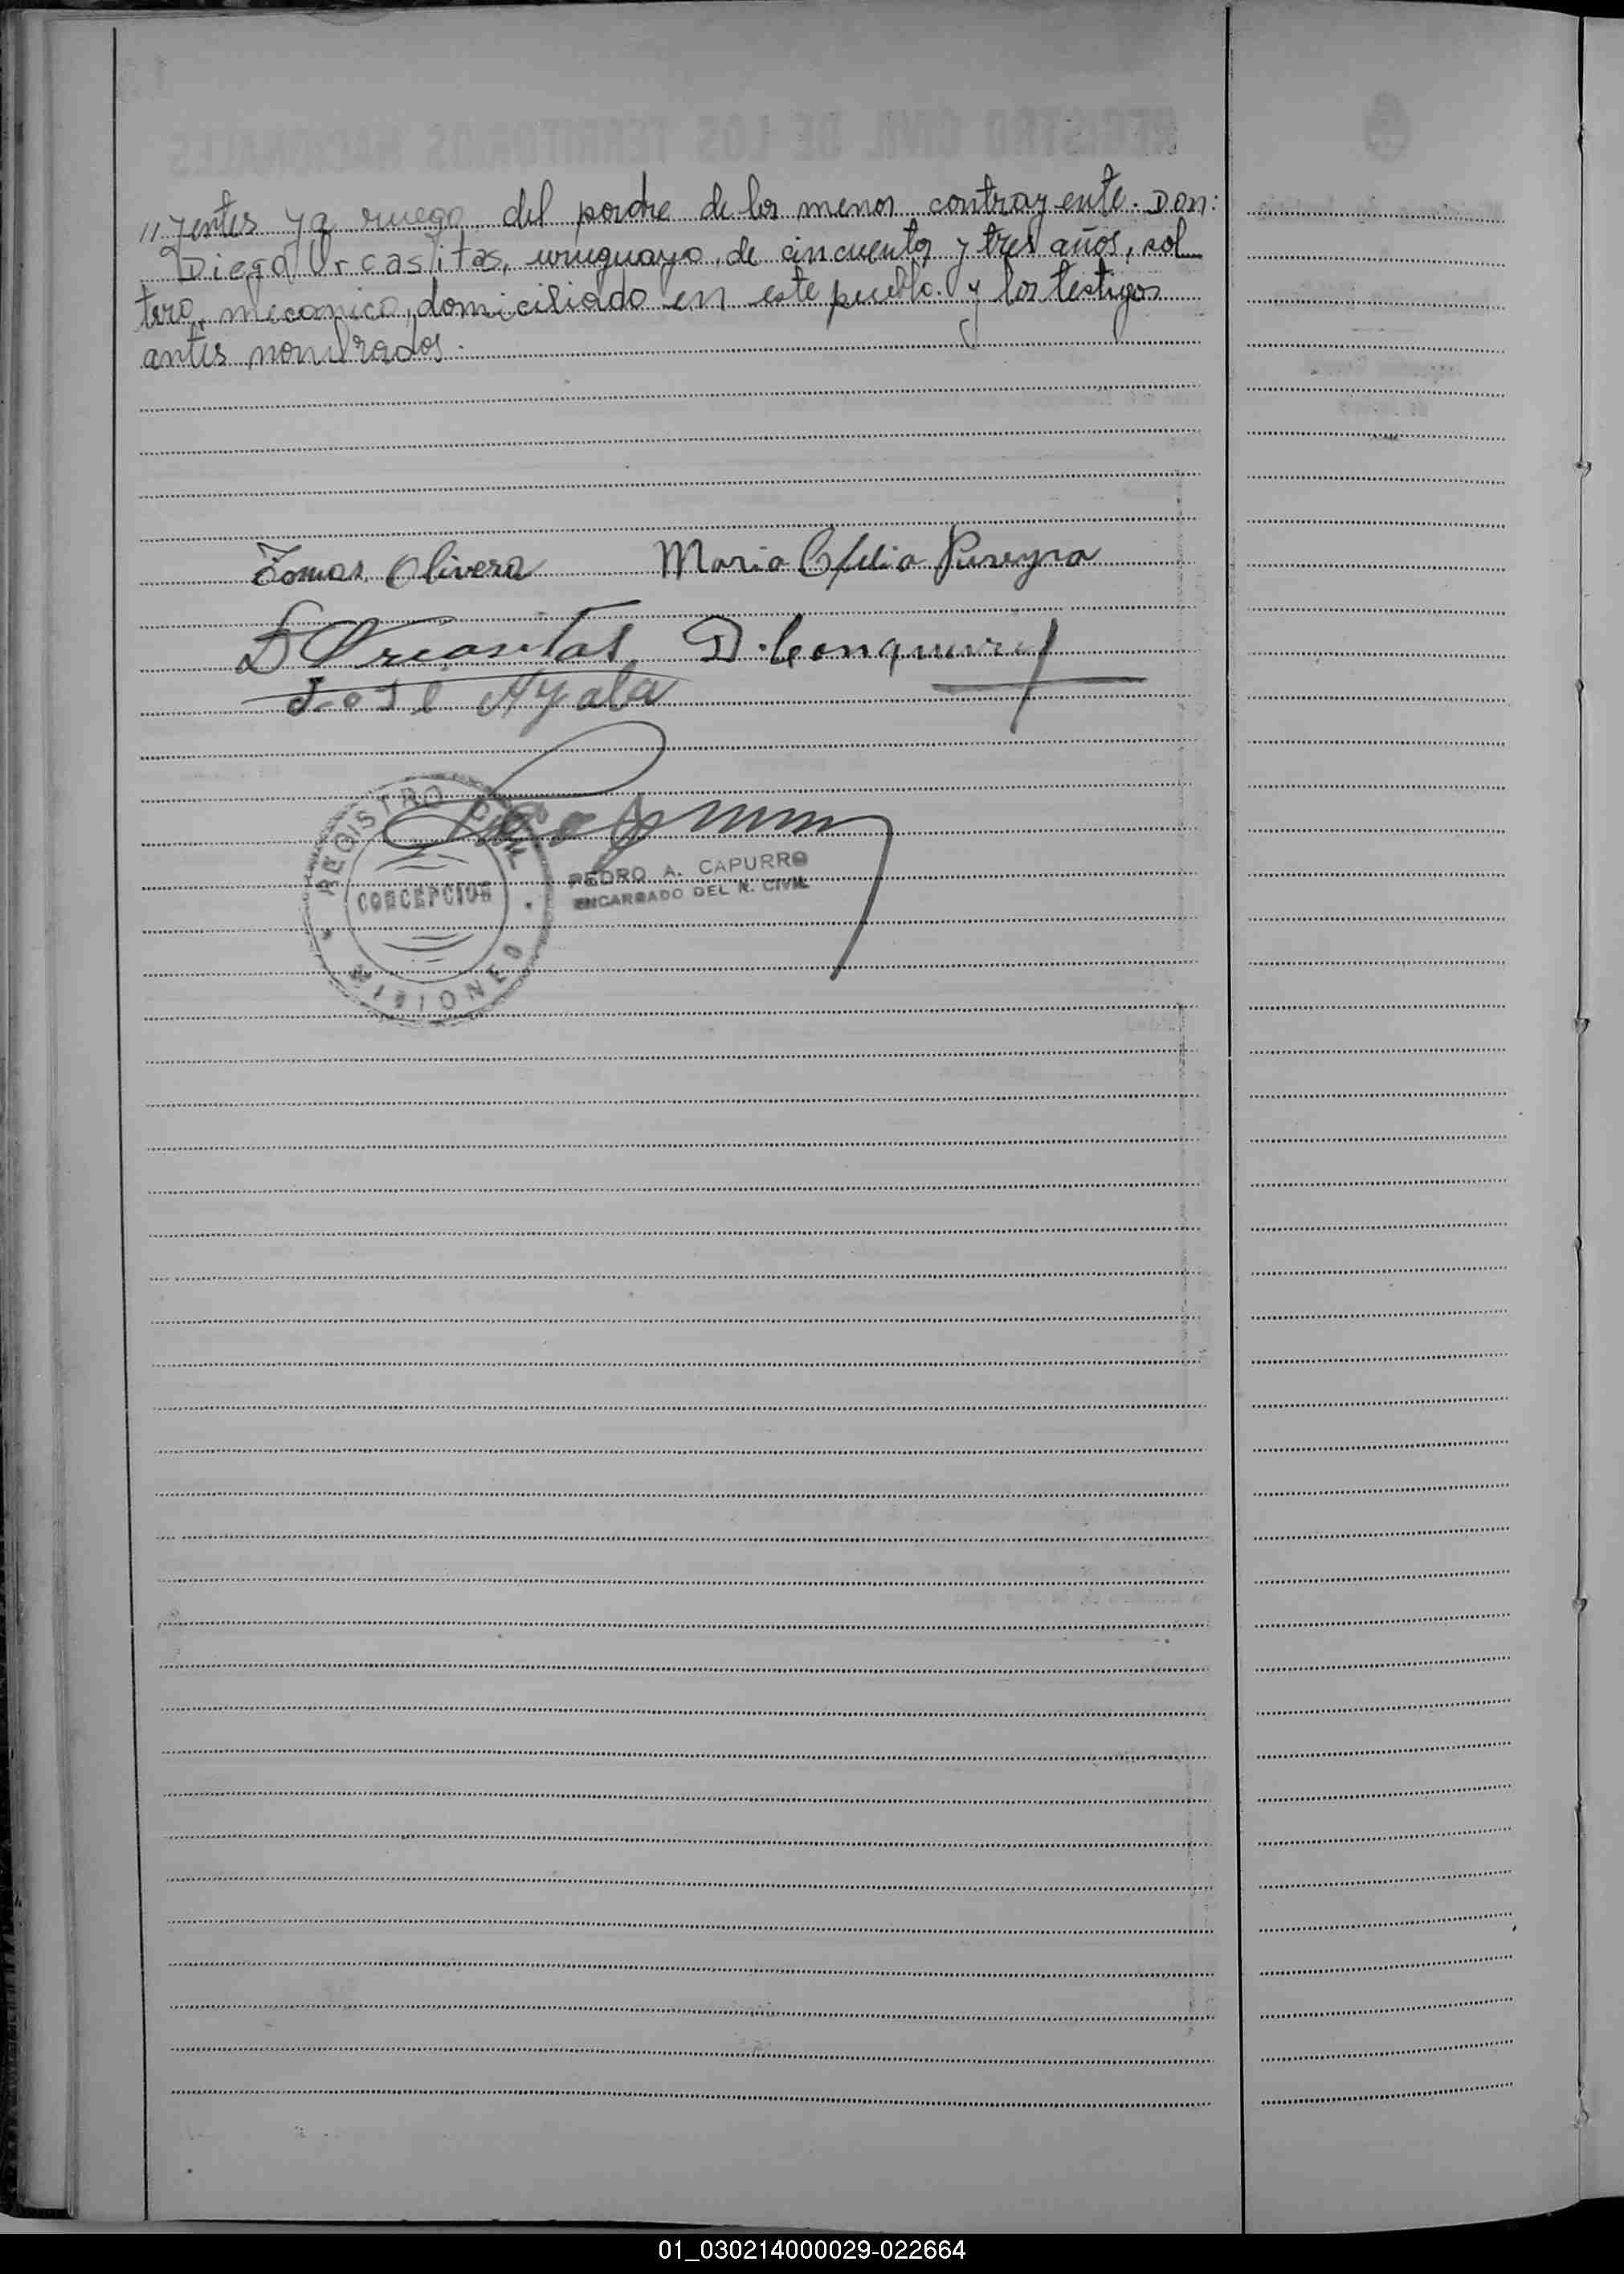 REGISTRO CIVIL DE LOS TERRITORIOS NACIONALES
"yentes y a ruego del padre de la menor contrayente. Don:
Diego Urcasitas, uruguayo, de cincuenta y tres años, sol
tero, mecanico, domiciliado en este pueblo y los testigos
antes nombrados.
Tomas Olivera Maria Pereyra
D Urcasitas D.
Jose Ayala
REGISTRO CIVIL
CONCEPCION
MISIONES
PEDRO A. CAPURRO
ENCARGADO DEL R. CIVIL
01_030214000029-022664